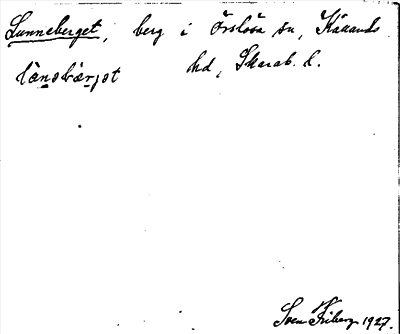 Lunneberget, berg i Örslösa sn, Kållands
hd, Skarab. l.
Sven Friberg 1927.